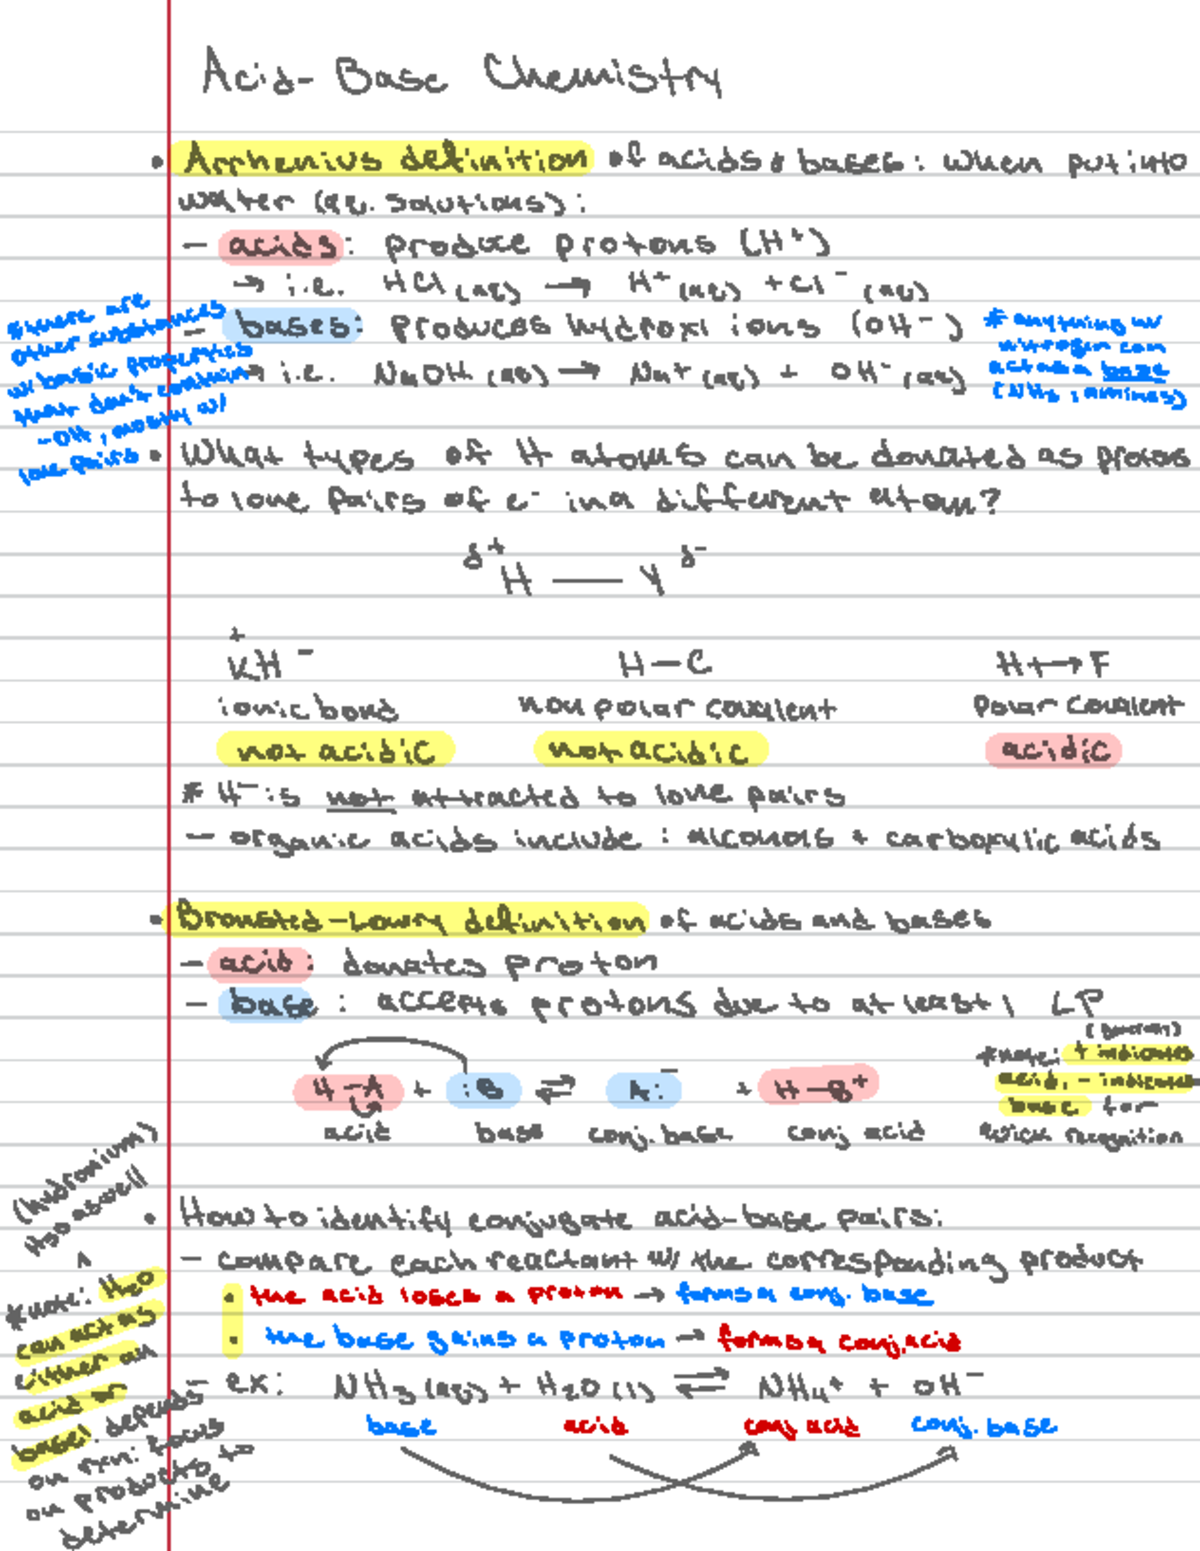 Acid-Base Chemistry
• Arrhenius definition of acids & bases: when put into
water (aq. solutions):
- acids: produce protons (H⁺)
→ i.e. HCl (aq) → H⁺ (aq) + Cl⁻ (aq)
- bases: produces hydroxi ions (OH⁻)
→ i.e. NaOH (aq) → Na⁺ (aq) + OH⁻ (aq)
* there are
other substances
w/ basic properties
that don't contain
-OH, mostly w/
lone pairs
* anything w/
nitrogen can
act as a base
(NH₃, amines)
• What types of H atoms can be donated as protons
to lone pairs of e⁻ in a different atom?
δ⁺ H — Y δ⁻
⁺KH⁻ H-C H+→F
ionic bond nonpolar covalent polar covalent
not acidic not acidic acidic
* H⁻ is not attracted to lone pairs
- organic acids include: alcohols + carboxylic acids
• Bronsted-Lowry definition of acids and bases
- acid: donates proton
- base: accepts protons due to at least 1 LP
H-A + :B ⇌ A:⁻ + H-B⁺
acid base conj. base conj acid
*note: + indicates
acid, - indicates
base for
quick recognition
• How to identify conjugate acid-base pairs:
- compare each reactant w/ the corresponding product
• the acid loses a proton → forms a conj. base
• the base gains a proton → forms a conj. acid
- ex: NH₃ (aq) + H₂O (l) ⇌ NH₄⁺ + OH⁻
base acid conj acid conj. base
(hydronium)
H₃O as well
^
*note: H₂O
can act as
either an
acid or
base! depends
on rxn: focus
on products to
determine